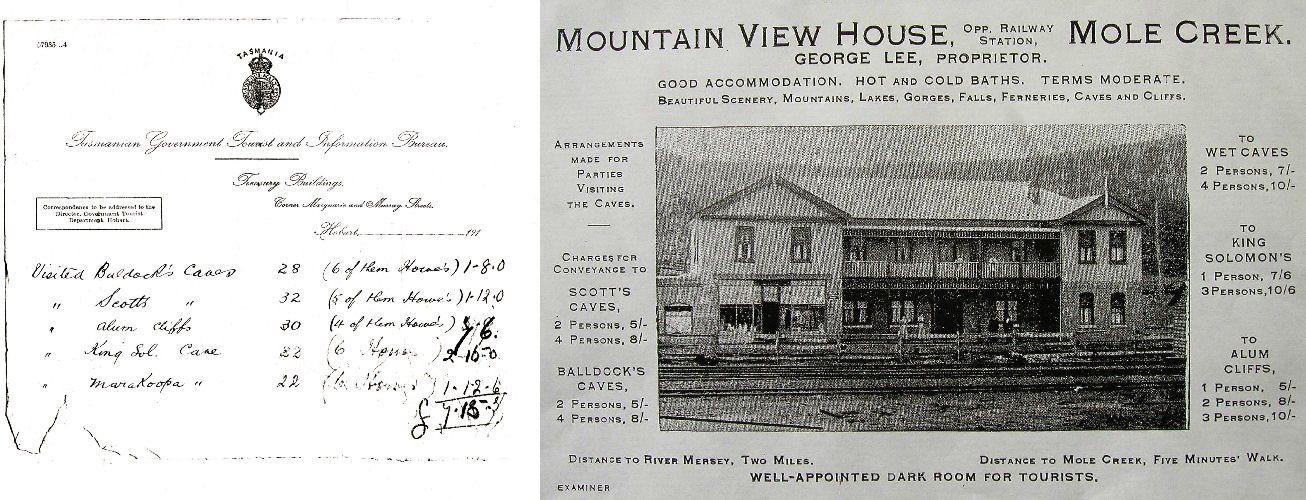 57935 ..4
TASMANIA
Tasmanian Government Tourist and Information Bureau.
Treasury Buildings,
Corner Macquarie and Murray Streets.
Correspondence to be addressed to the
Director, Government Tourist
Department, Hobart.
Hobart, 191
Visited Baldock's Caves 28 (6 of them Howe's) 1-8.0
" Scotts " 32 (5 of them Howe's) 1-12.0
" Alum Cliffs 30 (4 of them Howe's)
" King Sol. Cave 22 (6 ) 2-15-0
" Marakoopa " 22 1-12-6
£
MOUNTAIN VIEW HOUSE, OPP. RAILWAY STATION, MOLE CREEK.
GEORGE LEE, PROPRIETOR.
GOOD ACCOMMODATION. HOT AND COLD BATHS. TERMS MODERATE.
BEAUTIFUL SCENERY, MOUNTAINS, LAKES, GORGES, FALLS, FERNERIES, CAVES AND CLIFFS.
ARRANGEMENTS
MADE FOR
PARTIES
VISITING
THE CAVES.
CHARGES FOR
CONVEYANCE TO
SCOTT'S
CAVES,
2 PERSONS, 5/-
4 PERSONS, 8/-
BALLDOCK'S
CAVES,
2 PERSONS, 5/-
4 PERSONS, 8/-
TO
WET CAVES
2 PERSONS, 7/-
4 PERSONS, 10/-
TO
KING
SOLOMON'S
1 PERSON, 7/6
3 PERSONS, 10/6
TO
ALUM
CLIFFS,
1 PERSON, 5/-
2 PERSONS, 8/-
3 PERSONS, 10/-
DISTANCE TO RIVER MERSEY, TWO MILES. DISTANCE TO MOLE CREEK, FIVE MINUTES' WALK.
WELL-APPOINTED DARK ROOM FOR TOURISTS.
EXAMINER